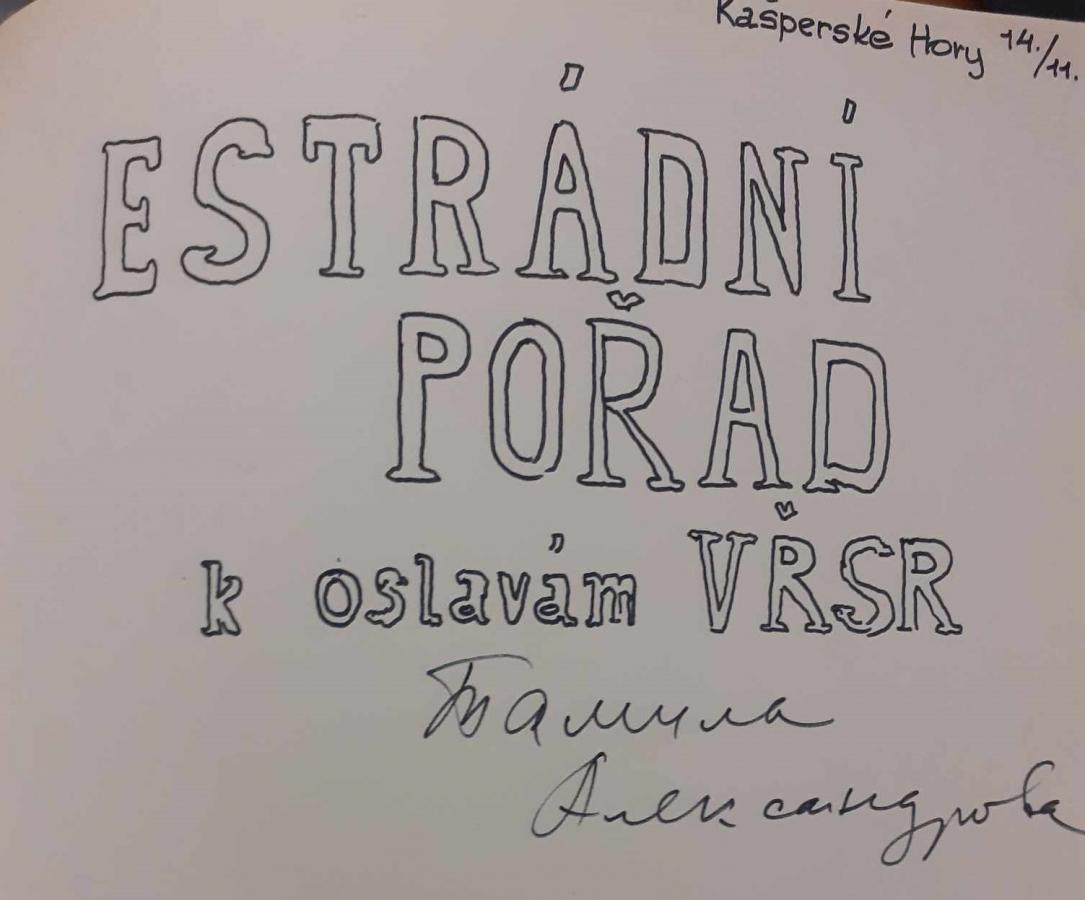 Kašperské Hory 14./11.
ESTRÁDNÍ
POŘAD
k oslavám VŘSR
Тамила
Александрова